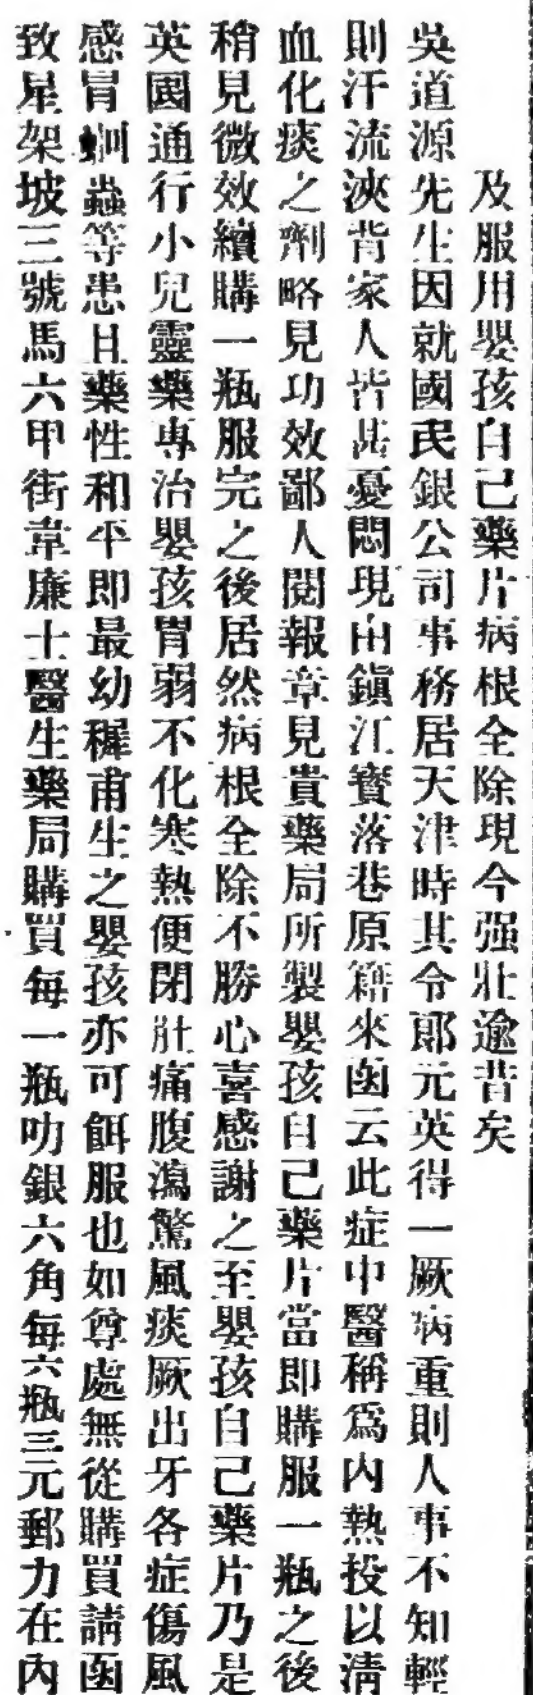 及服用嬰孩自己藥片病根全除現今强壯逾昔矣
吳道源先生因就國民銀公司事務居天津時其令郎元英得一厥病重則人事不知輕
則汗流浹背家人皆甚憂悶現由鎭江寳落巷原籍來函云此症中醫稱爲內熱投以淸
血化痰之劑略見功效鄙人閱報章見貴藥局所製嬰孩自己藥片當即購服一瓶之後
稍見微效續購一瓶服完之後居然病根全除不勝心喜感謝之至嬰孩自己藥片乃是
英國通行小兒靈藥專治嬰孩胃弱不化寒熱便閉肚痛腹瀉驚風痰厥出牙各症傷風
感冒蛔蟲等患且藥性和平即最幼穉甫生之嬰孩亦可餌服也如尊處無從購買請函
致星架坡三號馬六甲街韋廉士醫生藥局購買每一瓶叻銀六角每六瓶三元郵力在內